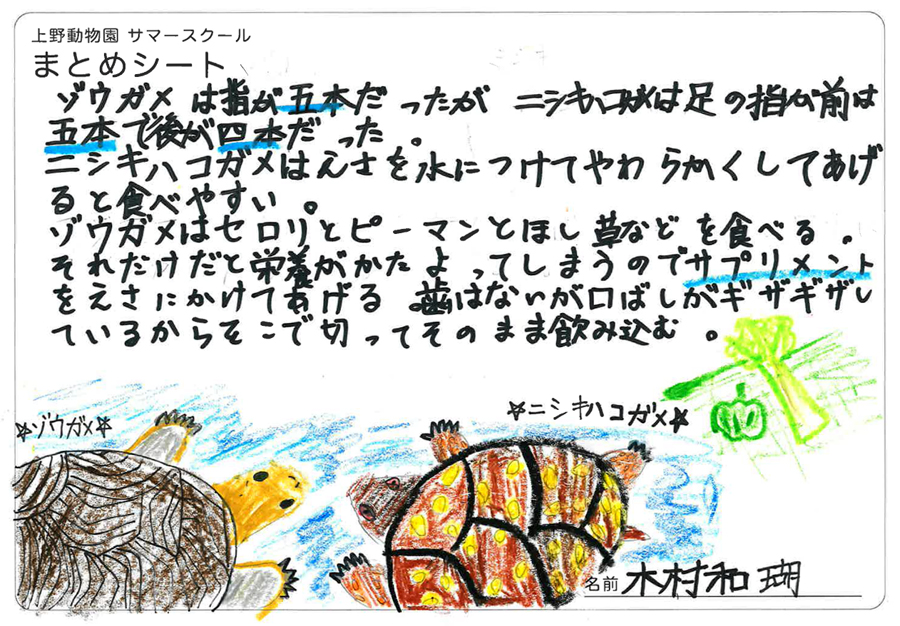 上野動物園 サマースクール
まとめシート
ゾウガメは指が五本だったが ニシキハコガメは足の指が前は
五本で後が四本だった。
ニシキハコガメはえさを水につけてやわらかくしてあげ
ると食べやすい。
ゾウガメはセロリとピーマンとほし草などを食べる。
それだけだと栄養がかたよってしまうのでサプリメント
をえさにかけてあげる 歯はないが口ばしがギザギザし
ているからそこで切ってそのまま飲み込む。
☆ゾウガメ☆
☆ニシキハコガメ☆
名前 木村和瑚